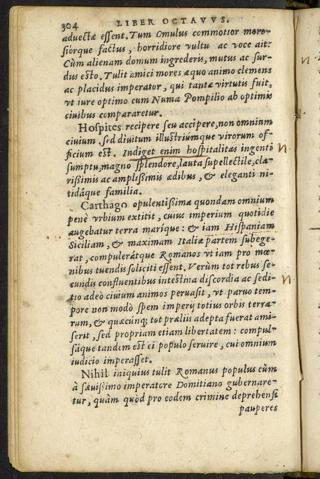 304 LIBER OCTAVVS.
aduectæ essent. Tum Omulus commotior moro-
siórque factus, horridiore vultu ac voce ait:
Cùm alienam domum ingrederis, mutus ac sur-
dus esto. Tulit amici mores æquo animo clemens
ac placidus imperator, qui tantæ virtutis fuit,
vt iure optimo cum Numa Pompilio ab optimis
ciuibus compararetur.
Hospites recipere seu accipere, non omnium
ciuium, sed diuitum illustriúmque virorum of-
ficium est. Indiget enim hospitalitas ingenti
sumptu, magno splendore, lauta supellectile, cla-
rißimis ac amplißimis ædibus, & eleganti ni-
tidáque familia.
Carthago opulentißima quondam omnium
penè vrbium extitit, cuius imperium quotidie
augebatur terra marique: & iam Hispaniam
Siciliam, & maximam Italiæ partem subege-
rat, compulerátque Romanos vt iam pro mœ-
nibus tuendis soliciti essent. Verùm tot rebus se-
cundis confluentibus intestina discordia ac sedi-
tio adeò ciuium animos peruasit, vt paruo tem-
pore non modò spem imperij totius orbis terra-
rum, & quæcunq; tot præliis adepta fuerat ami-
serit, sed propriam etiam libertatem: compul-
sáque tandem est ei populo seruire, cui omnium
iudicio imperasset.
Nihil iniquius tulit Romanus populus cùm
à sæuißimo imperatore Domitiano gubernare-
tur, quàm quòd pro eodem crimine deprehensi
pauperes